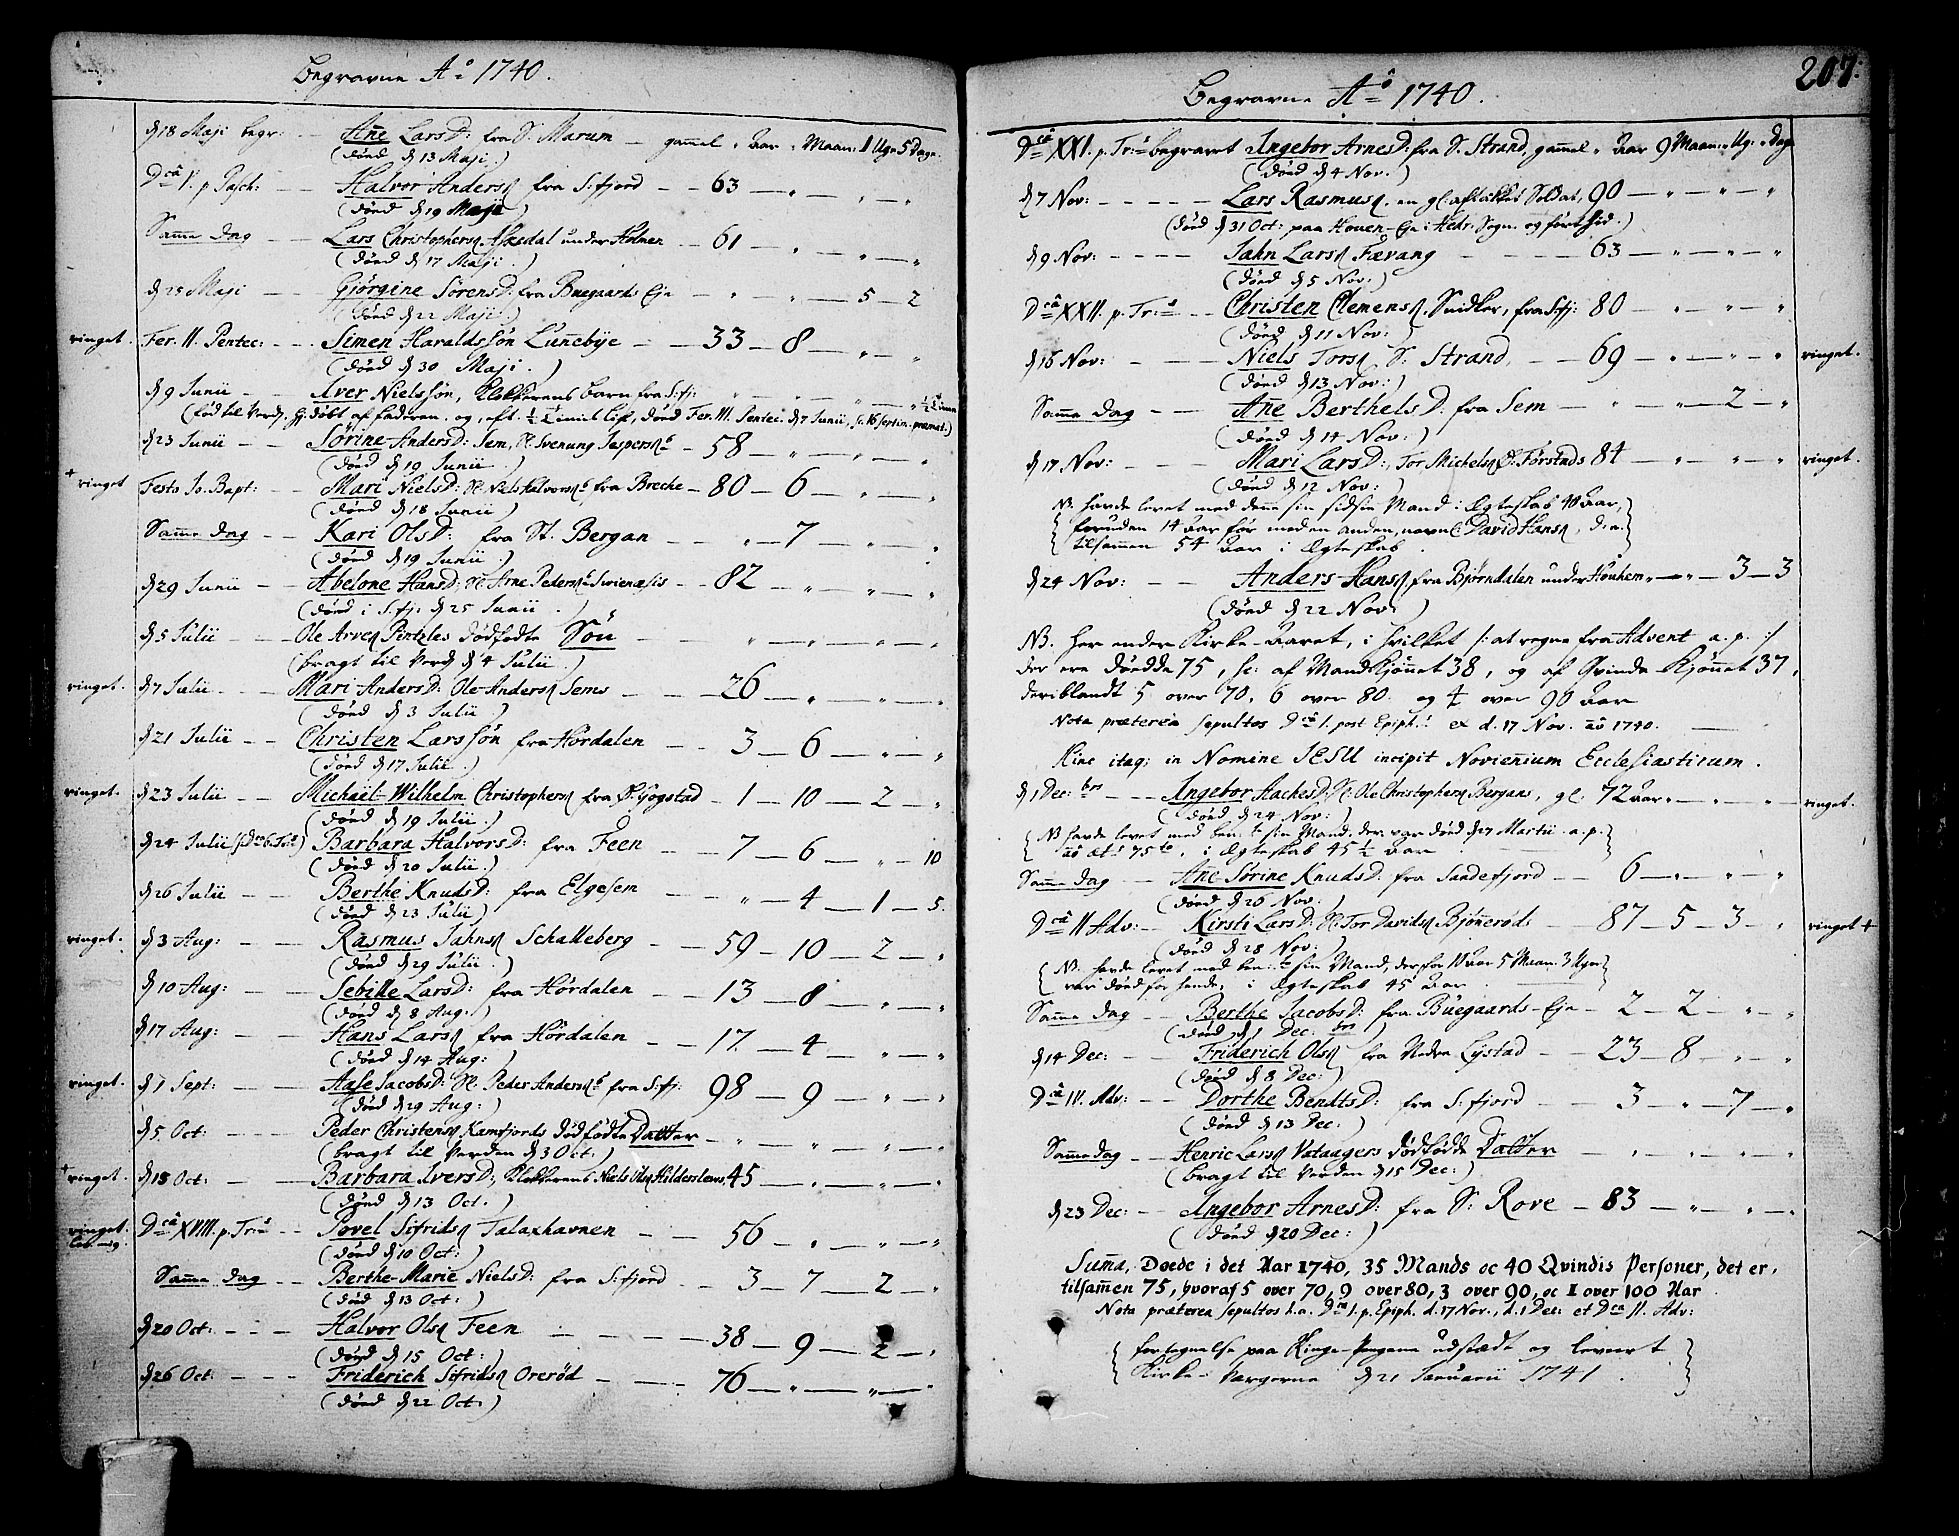 Begravne Aº 1740.
d 18 Maji begr: — Añe LarsD: fra S. Marum — gammel " Aar " Maan: 1 Uge 5 Dage.
(døed d 13 Maji.)
Dca V. p Pasch: — Halvor Anders fra S:fjord — 63 — " — " — "
(døed d 19 Maji)
Samme dag — Lars Christophers Askedal under Holmen — 61 — " — " — "
(døed d 17 Maji.)
d 25 Maji — Gjørgine SørensD: fra Buegaards Eje — " — " — 5 — 2
(døed d 22 Maji.)
ringet. Fer. II. Pentec: — Simen Haraldssøn Luñebye — 33 — 8 — " — "
(døed d 30 Maji.)
d 9 Junii — Iver Nielssøn, Klokkerens barn fra S:fj: " — " — " — " ½ Time
(fød til Verd, Gj.døbt af faderen, og, eft. ½ Times Lif, døed Fer. III. Pentec: d 7 Junii, sc. 16 septim. præmat.)
d 23 Junii — Sørine AndersD: Sem, Sl. Svenung Jespers — 58 — " — " — "
(døed d 19 Junii.)
+ ringet Festo Jo. Bapt: — Mari NielsD: Sl. Niels Halvors fra Breche — 80 — 6 — " — "
(døed d 18 Junii)
Samme dag — Kari OlsD: fra St. Bergan — " — 7 — " — "
(døed d 19 Junii)
d 29 Junii — Abelone HansD: Sl. Arne Peders — 82 — " — " — "
(døed i S.fj: d 25 Junii.)
d 5 Julii — Ole Arves Pentzles dødfødte Søn — " — " — " — "
(bragt til Verd d 4 Julii.)
ringet. d 7 Julii — Mari AndersD: Ole Anders Sems — 26 — " — " — "
(døed d 3 Julii)
d 21 Julii — Christen Larssøn fra Hørdalen — 3 — 6 — " — "
(døed d 17 Julii.)
ringet. d 23 Julii — Michaël-Wilhelm Christophers fra Ø. Gogstad — 1 — 10 — 2 — "
(døed d 19 Julii.)
d 24 Julii — Barbara HalvorsD: fra Feen — 7 — 6 — " — 10
(døed d 20 Julii.)
d 26 Julii — Berthe KnudsD: fra Elgesem — " — 4 — 1 — 5.
(døed d 23 Julii)
ringet. d 3 Aug: — Rasmus Jahns Schalleberg — 59 — 10 — 2 — "
(døed d 29 Julii.)
d 10 Aug: — Sebille LarsD: fra Hørdalen — 13 — 8 — " — "
(døed d 8 Aug:)
d 17 Aug: — Hans Lars fra Hørdalen — 17. — 4 — " — "
(døed d 14 Aug:)
ringet. d 1 Sept: — Aase JacobsD: Sl. Peder Anders fra S:fj: 98 — 9 — " — "
(døed d 29 Aug:)
d 5 Oct: — Peder Christens Kamfjords dødfødte Datter — " — " — " — "
(bragt til Verden d 3 Oct:)
+ ringet. d 18 Oct: — Barbara IversD: Klokkerens Niels Ols Hildersløws, 45 — " — " — "
(døed d 13 Oct.)
ringet. Dca XVIII. p. Tr: — Povel Sifrids Talaxhavnen — 56 — " — " — "
(døed d 10 Oct:)
Samme dag — Berthe-Marie NielsD: fra S:fjord — 3 — 7 — 2 — "
(døed d 13 Oct:)
d 20 Oct: — Halvor Ols Feen — 38 — 9 — 2 — "
(døed d 15 Oct:)
d 26 Oct: — Friderich Sifrids Orerød — 76 — " — " — "
(døed d 22 Oct:)
207.
Begravne Aº 1740.
Dca XXI. p. Tr: begravet Ingebor ArnesD: fra S. Strand, gammel " Aar 9 Maan: " Ug: " Dag
(døed d 4 Nov.)
d 7 Nov: — Lars Rasmus, en gl: aftakket Soldat, 90 — " — " — "
(døed d 31 Oct: paa Houen-Eje i Hedr: Sogn, og fort hid.)
d 9 Nov: — Jahn Lars Færang — 63 — " — " — "
(døed d 5 Nov:)
Dca XXII. p. Tr: — Christen Clemens Snidker, fra S:fj: 80 — " — " — "
(døed d 11 Nov:)
d 15 Nov: — Niels Tors S: Strand — 69 — " — " — " ringet.
(døed d 13 Nov:)
Samme dag — Añe BerthelsD: fra Sem — " — " — 2 — "
(døed d 14 Nov:)
d 17 Nov: — Mari LarsD: Tor Michels Ø. Førstads 84 — " — " — " ringet.
(døed d 12 Nov:)
NB. havde levet med denne sin sidste Mand i Ægteskab 40 Aar,
foruden 14 Aar før med en anden, navnl: David Hans, d:e:
tilsammen 54 Aar i Ægteskab.
d 24 Nov: — Anders Hans fra Bjørndalen under Houhem " — " — 3 — 3
(døed d 22 Nov:)
NB. Her ender Kirke-Aaret, i hvilket /: at regne fra Advent a. p. :/
der ere døedde 75, sc: af MandKjønnet 38, og af Qvinde-Kjønnet 37,
deriblandt 5 over 70, 6 over 80 og 4 over 90 Aar
Nota præterea sepultos Dca I. post Epiph: ex d. 17 Nov. aõ 1740.
Hinc itaq; in Nomine JESU incipit Novieñium Ecclesiasticum.
d 1 Dec: — Ingebor AachesD: Sl. Ole Christophers Bergans, gl: 72 Aar " — " — " ringet.
(døed d 24 Nov:)
(NB havde levet med ben: sin Mand, der var døed d 27 Martii a. p.
aõ æt: 75, i Ægteskab 45 ½ Aar.)
Samme dag — Añe Sørine KnudsD: fra Sandefjord — 6 — " — " — "
(døed d 26 Nov:)
Dca II Adv: — Kirsti LarsD: Sl. Tor Davids Bjønerøds — 87 — 5 — 3 — " ringet +
(døed d 28 Nov:)
(NB. havde levet med ben: sin Mand, der for 11 Aar 5 Maan: 3 Uger
var døed for hende, i Ægteskab 45 Aar.)
Samme dag — Berthe JacobsD: fra Buegaards-Eje — 2 — 2 — " — "
(døed d 1 Dec:)
d 14 Dec: — Friderich Ols fra Nedre Lystad — 23 — 8 — " — "
(døed d 8 Dec:)
Dca IV. Adv: — Dorthe BendtsD: fra S:fjord — 3 — " — 7 — "
(døed d 13 Dec:)
Samme dag — Henric Lars Vataagers dødfødde Datter — " — " — " — "
(bragt til Verden d 15 Dec:)
d 23 Dec: — Ingebor ArnesD: fra S: Rove — 83 — " — " — "
(døed d 20 Dec:)
Suma, Døede i det Aar 1740, 35 Mands oc 40 Qvindis Personer, det er,
tilsammen 75, hvoraf 5 over 70, 9 over 80, 3 over 90, oc 1 over 100 Aar
Nota præterea sepultos h.a. Dca I. p. Epiph. d. 17 Nov., d. 1 Dec: et Dca II. Adv:
fortegnelse paa Ringe-Pengene udstædt og leveret
Kirke-Vargerne d 21 Januarii 1741.